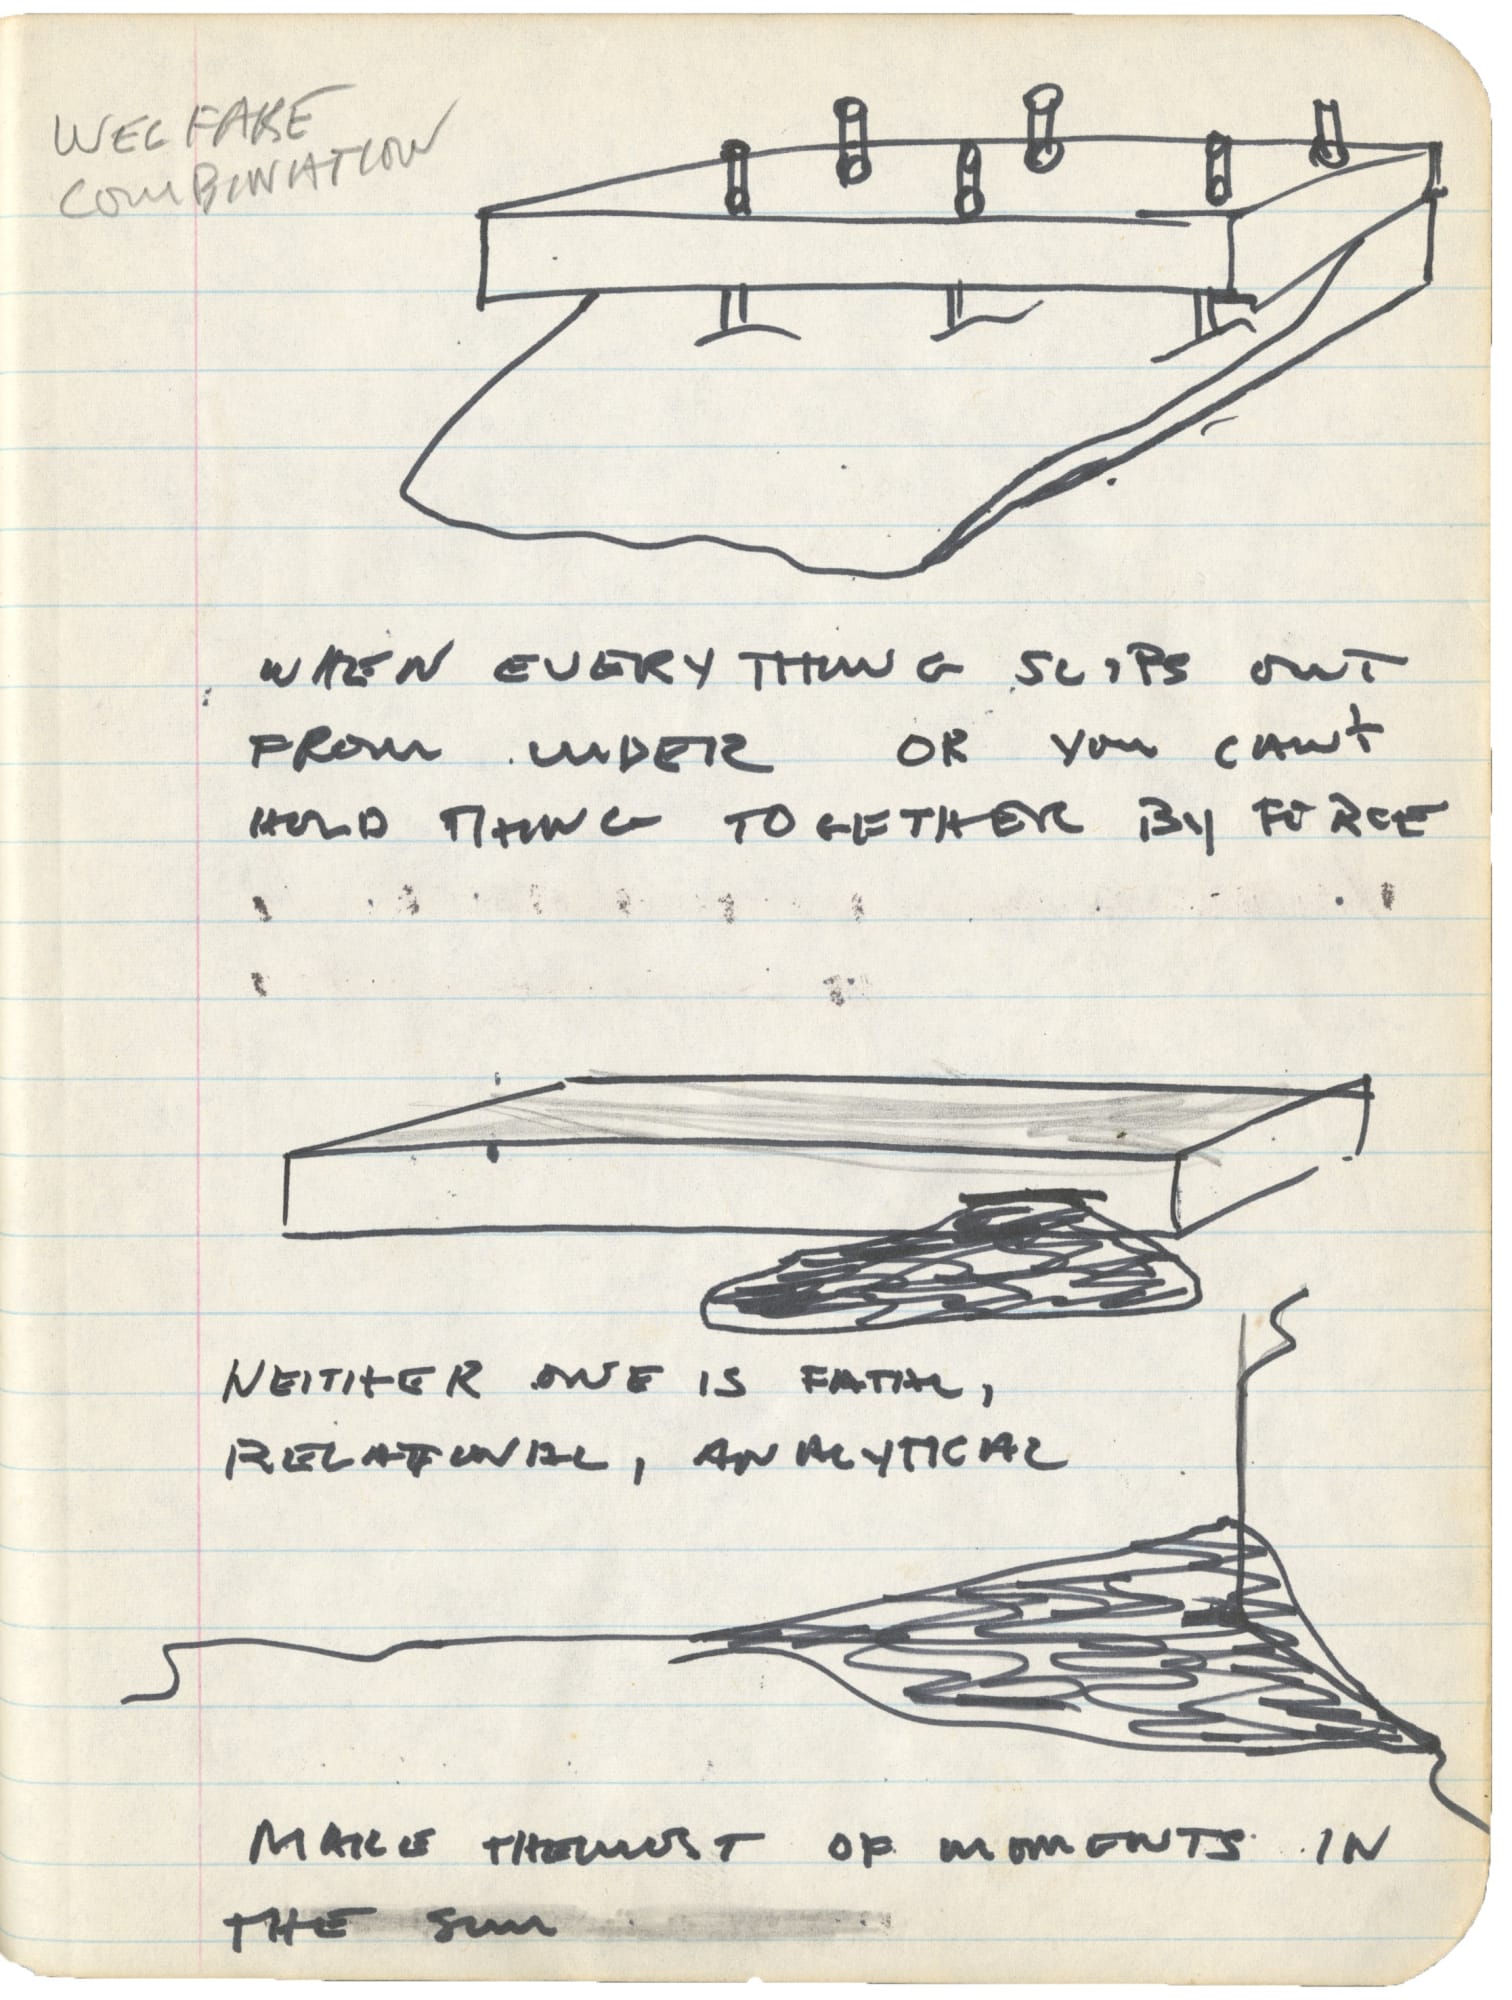 WELFARE
COMBINATION
WHEN EVERYTHING SLIPS OUT
FROM UNDER OR YOU CAN'T
HOLD THING TOGETHER BY FORCE
NEITHER ONE IS FATAL,
RELATIONAL, ANALYTICAL
MAKE THE MOST OF MOMENTS IN
THE SUN